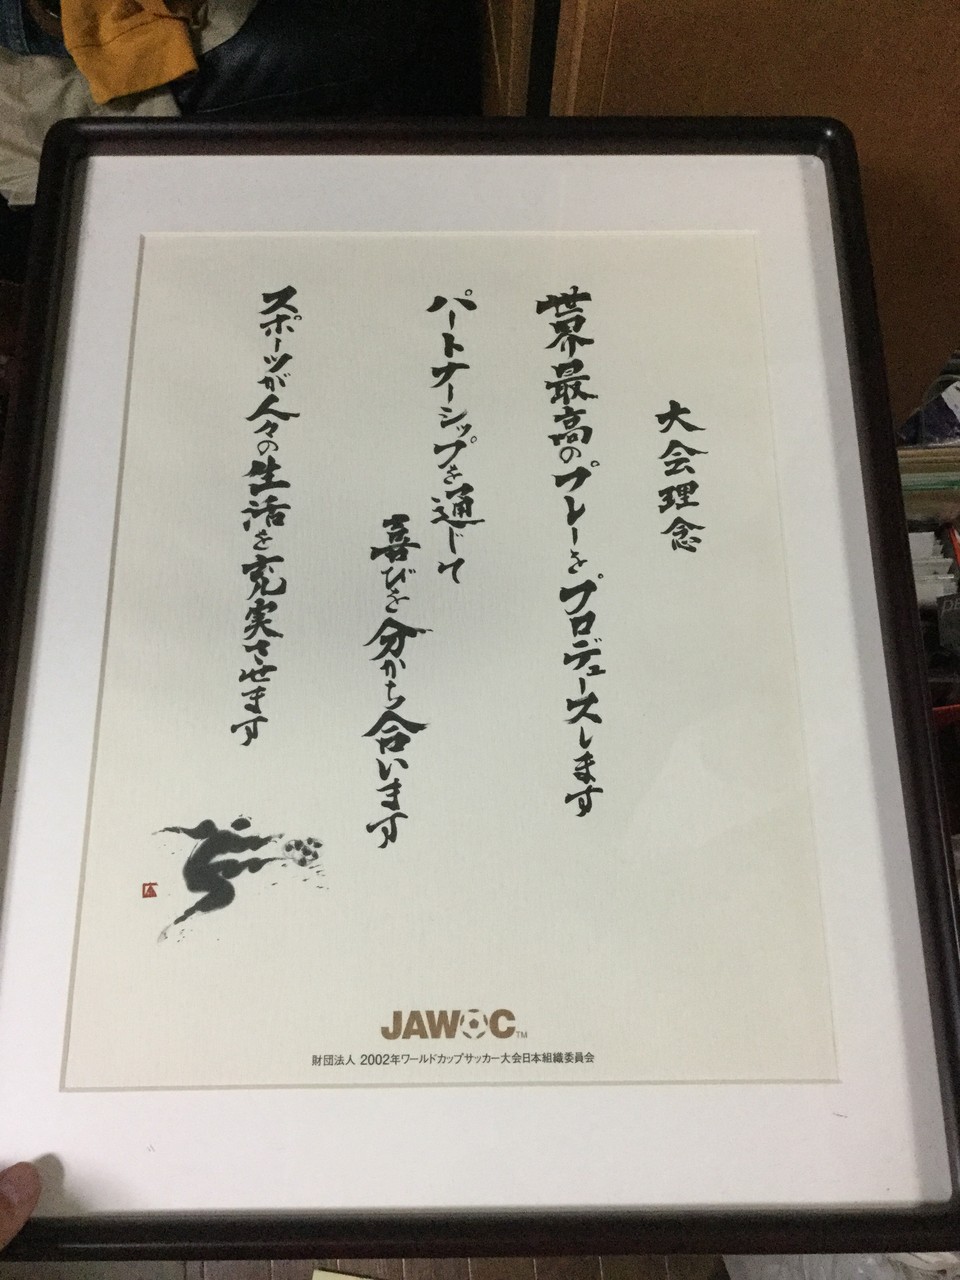 大会理念
世界最高のプレーをプロデュースします
パートナーシップを通じて
喜びを分かち合います
スポーツが人々の生活を充実させます
JAWOC TM
財団法人 2002年ワールドカップサッカー大会日本組織委員会